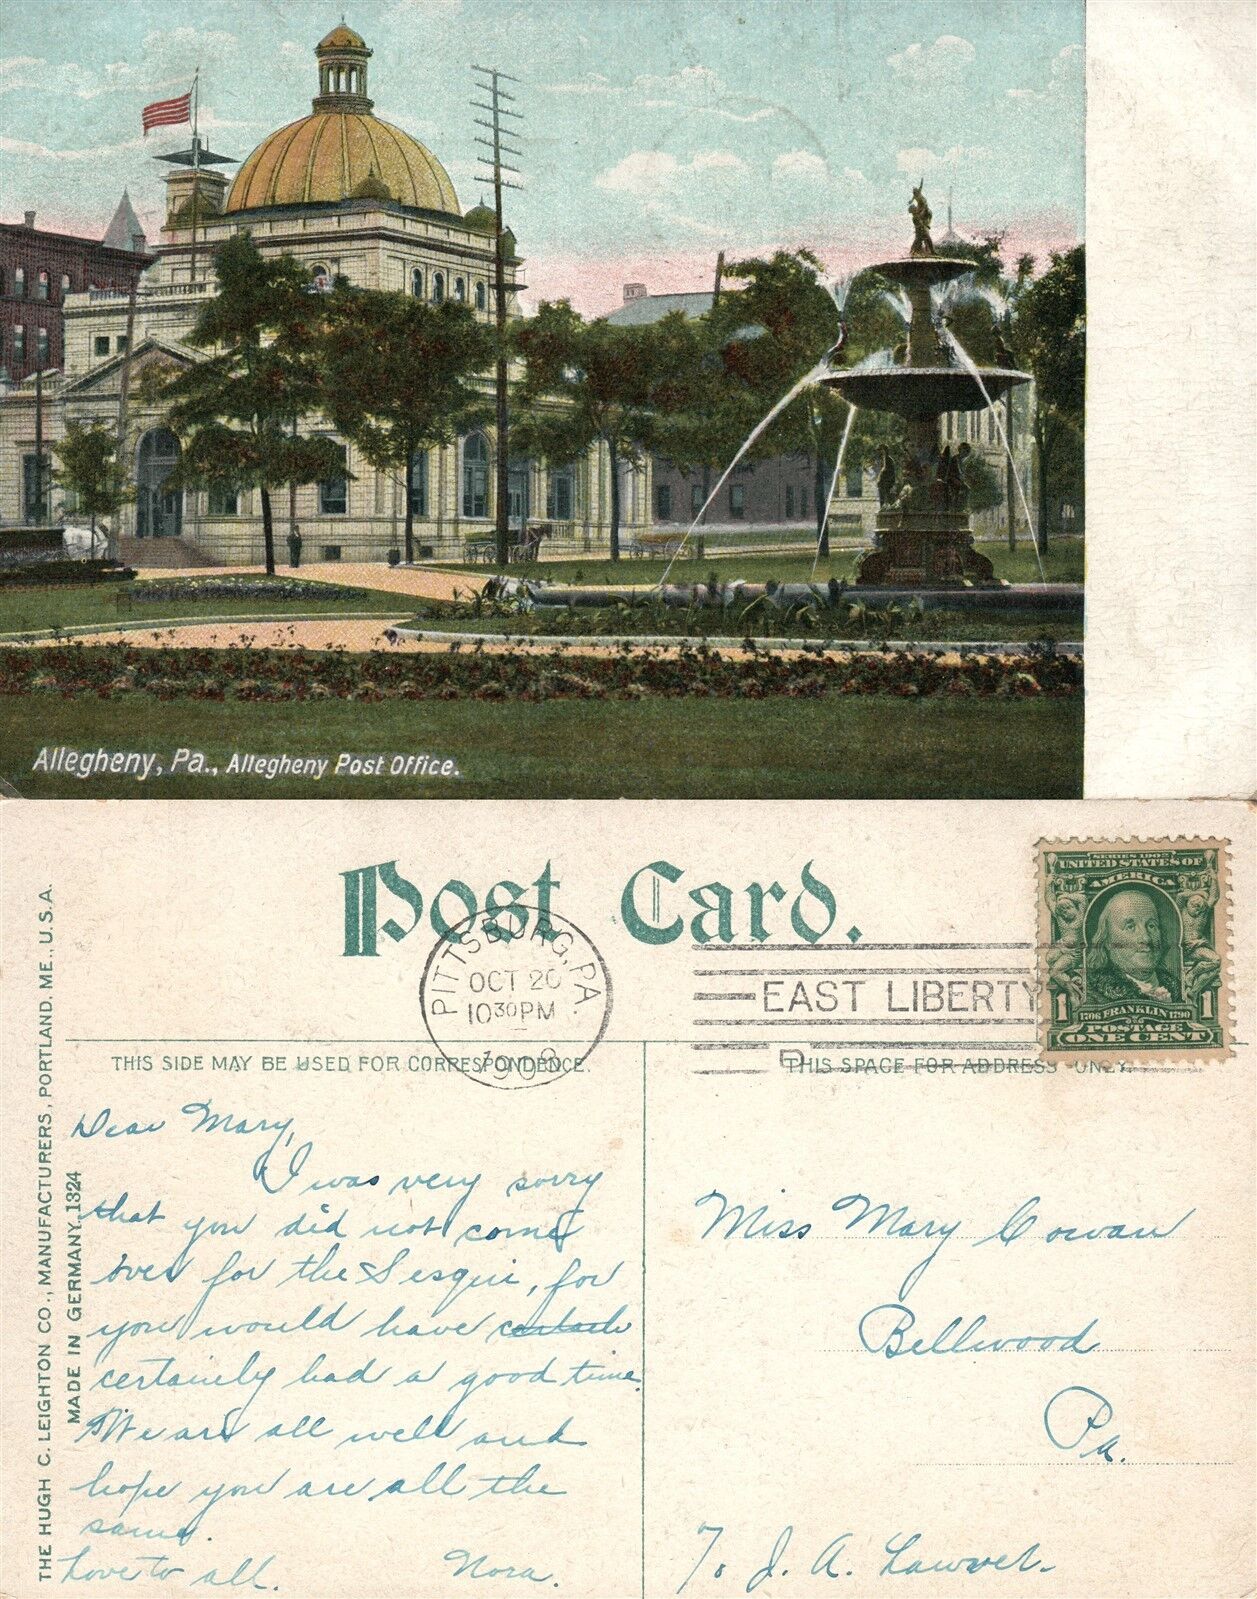 Allegheny, Pa., Allegheny Post Office.
Post Card.
SERIES 1902
UNITED STATES OF
AMERICA
1 1706 FRANKLIN 1790 1
POSTAGE
ONE CENT
PITTSBURG, PA.
OCT 20
10 30 PM
1908
EAST LIBERTY
THIS SIDE MAY BE USED FOR CORRESPONDENCE.
THIS SPACE FOR ADDRESS ONLY.
THE HUGH C. LEIGHTON CO., MANUFACTURERS, PORTLAND, ME., U.S.A.
MADE IN GERMANY 1324
Dear Mary,
I was very sorry
that you did not come
over for the Sesqui, for
you would have
certainly had a good time.
We are all well and
hope you are all the
same.
Love to all. Nora.
Miss Mary Cowan
Bellwood
Pa.
J. A. Lawver.